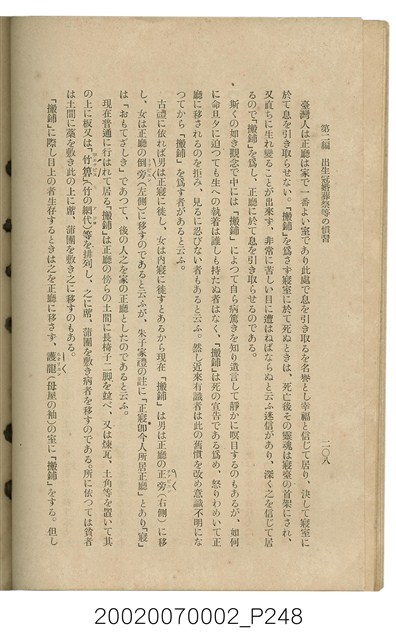 第二編　出生冠婚葬祭等の慣習
二〇八
臺灣人は正廳は家で一番よい室であり此處で息を引き取るを名譽とし幸福と信じて居り、決して寢室に
於て息を引き取らせない。「搬鋪」を爲さず寢室に於て死ぬときは、死亡後その靈魂は寢臺の首架にされ、
又直ちに生れ變ることが出來ず、非常に苦しい目に遭はねばならぬと云ふ迷信があり、深く之を信じて居
るので「搬鋪」を爲し、正廳に於て息を引き取らせるのである。
斯くの如き觀念で中には「搬鋪」によつて自ら病篤きを知り遺言して靜かに瞑目するのもあるが、如何
に命旦夕に迫つても生への執着は誰しも持たぬ者はなく、「搬鋪」は死の宣告である爲め、怒りわめいて正
廳に移されるのを拒み、見るに忍びない者もあると云ふ。然し近來有識者は此の舊慣を改め意識不明にな
つてから「搬鋪」を爲す者があると云ふ。
古禮に依れば男は正寢に徙し、女は内寢に徙すとあるから現在「搬鋪」は男は正廳の正旁（右側）に移
し、女は正廳の倒旁（左側）に移すのであると云ふが、朱子家禮の註に「正寢卽今人所居正廳」とあり「寢」
は「おもてざしき」であつて、後の人之を家の正廳としたのであると云ふ。
現在普通に行はれて居る「搬鋪」は正廳の傍らの土間に長椅子二脚を竝べ、又は煉瓦、土角等を置いて其
の上に板又は「竹簟」（竹の網代）等を排列し、之に蓆、蒲團を敷き病者を移すのである。所に依つては貧者
は土間に藁を敷き此の上に蓆、蒲團を敷き之に移すのもある。
「搬鋪」に際し目上の者生存するときは之を正廳に移さず、護龍（母屋の袖）の室に「搬鋪」をする。但し
20020070002_P248